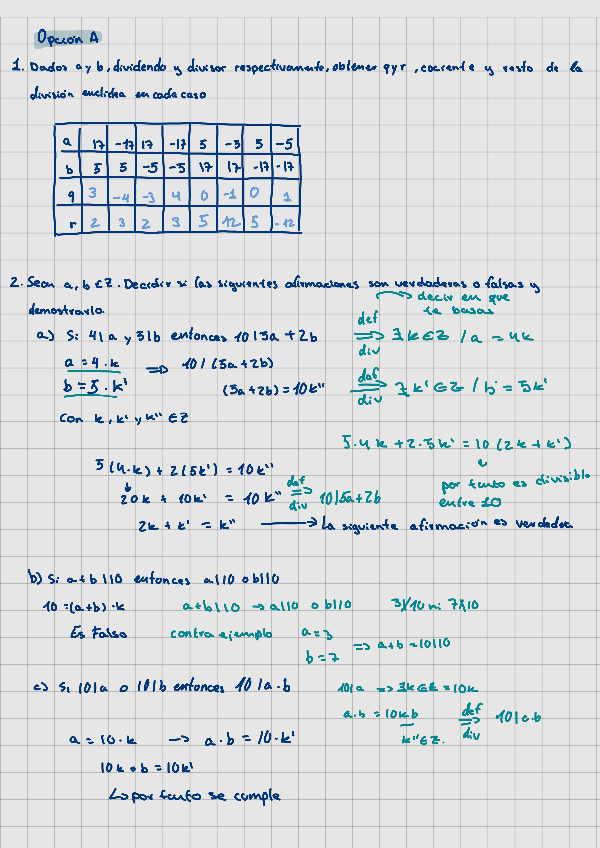 Opción A
1. Dados a y b, dividendo y divisor respectivamente, obtener q y r, cociente y resto de la
división euclídea en cada caso
a 17 -17 17 -17 5 -5 5 -5
b 5 5 -5 -5 17 17 -17 -17
q 3 -4 -3 4 0 -1 0 1
r 2 3 2 3 5 12 5 -12
2. Sean a, b ∈ Z. Decidir si las siguientes afirmaciones son verdaderas o falsas y
demostrarlo
decir en que
te basas
a) Si 4|a y 5|b entonces 10|5a + 2b
def
⟹ ∃k∈Z / a = 4k
div
a = 4·k ⟹ 10/(5a+2b)
b = 5·k' (5a+2b) = 10k''
def
⟹ ∃k'∈Z / b = 5k'
div
Con k, k' y k'' ∈ Z
5·4k + 2·5k' = 10(2k+k')
por tanto es divisible
entre 10
5(4·k) + 2(5k') = 10k''
20k + 10k' = 10k'' def ⟹ div 10|5a+2b
2k + k' = k'' → La siguiente afirmación es verdadera
b) Si a+b|10 entonces a|10 o b|10
10 = (a+b)·k a+b|10 → a|10 o b|10 3∤10 ni 7∤10
Es Falso contra ejemplo a = 3
b = 7 ⟹ a+b = 10|10
c) Si 10|a o 10|b entonces 10|a·b
10|a ⟹ ∃k∈Z = 10k
a·b = 10kb def ⟹ div 10|a·b
k''∈Z.
a = 10·k → a·b = 10·k'
10k·b = 10k'
↳ por tanto se cumple